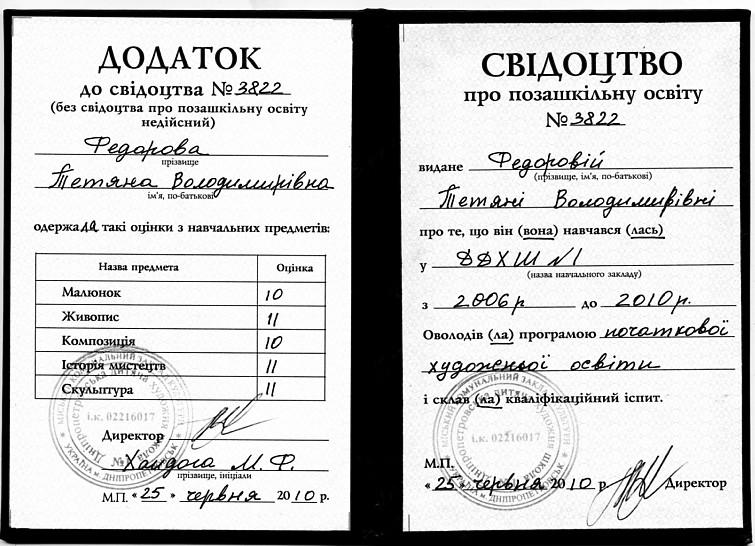 ДОДАТОК
до свідоцтва № 3822
(без свідоцтва про позашкільну освіту
недійсний)
Федорова
прізвище
Тетяна Володимирівна
ім'я, по-батькові
одержала такі оцінки з навчальних предметів:
Назва предмета Оцінка
Малюнок 10
Живопис 11
Композиція 10
Історія мистецтв 11
Скульптура 11
і.к. 02216017
Директор
М. Ф.
прізвище, ініціали
М.П. «25» червня 2010 р.
СВІДОЦТВО
про позашкільну освіту
№ 3822
видане Федоровій
(прізвище, ім'я, по-батькові)
Тетяні Володимирівні
про те, що він (вона) навчався (лась)
у ДДХШ №1
(назва навчального закладу)
з 2006р до 2010р.
Оволодів (ла) програмою початкової
художньої освіти
і склав (ла) кваліфікаційний іспит.
і.к. 02216017
М.П.
«25» червня 2010 р Директор